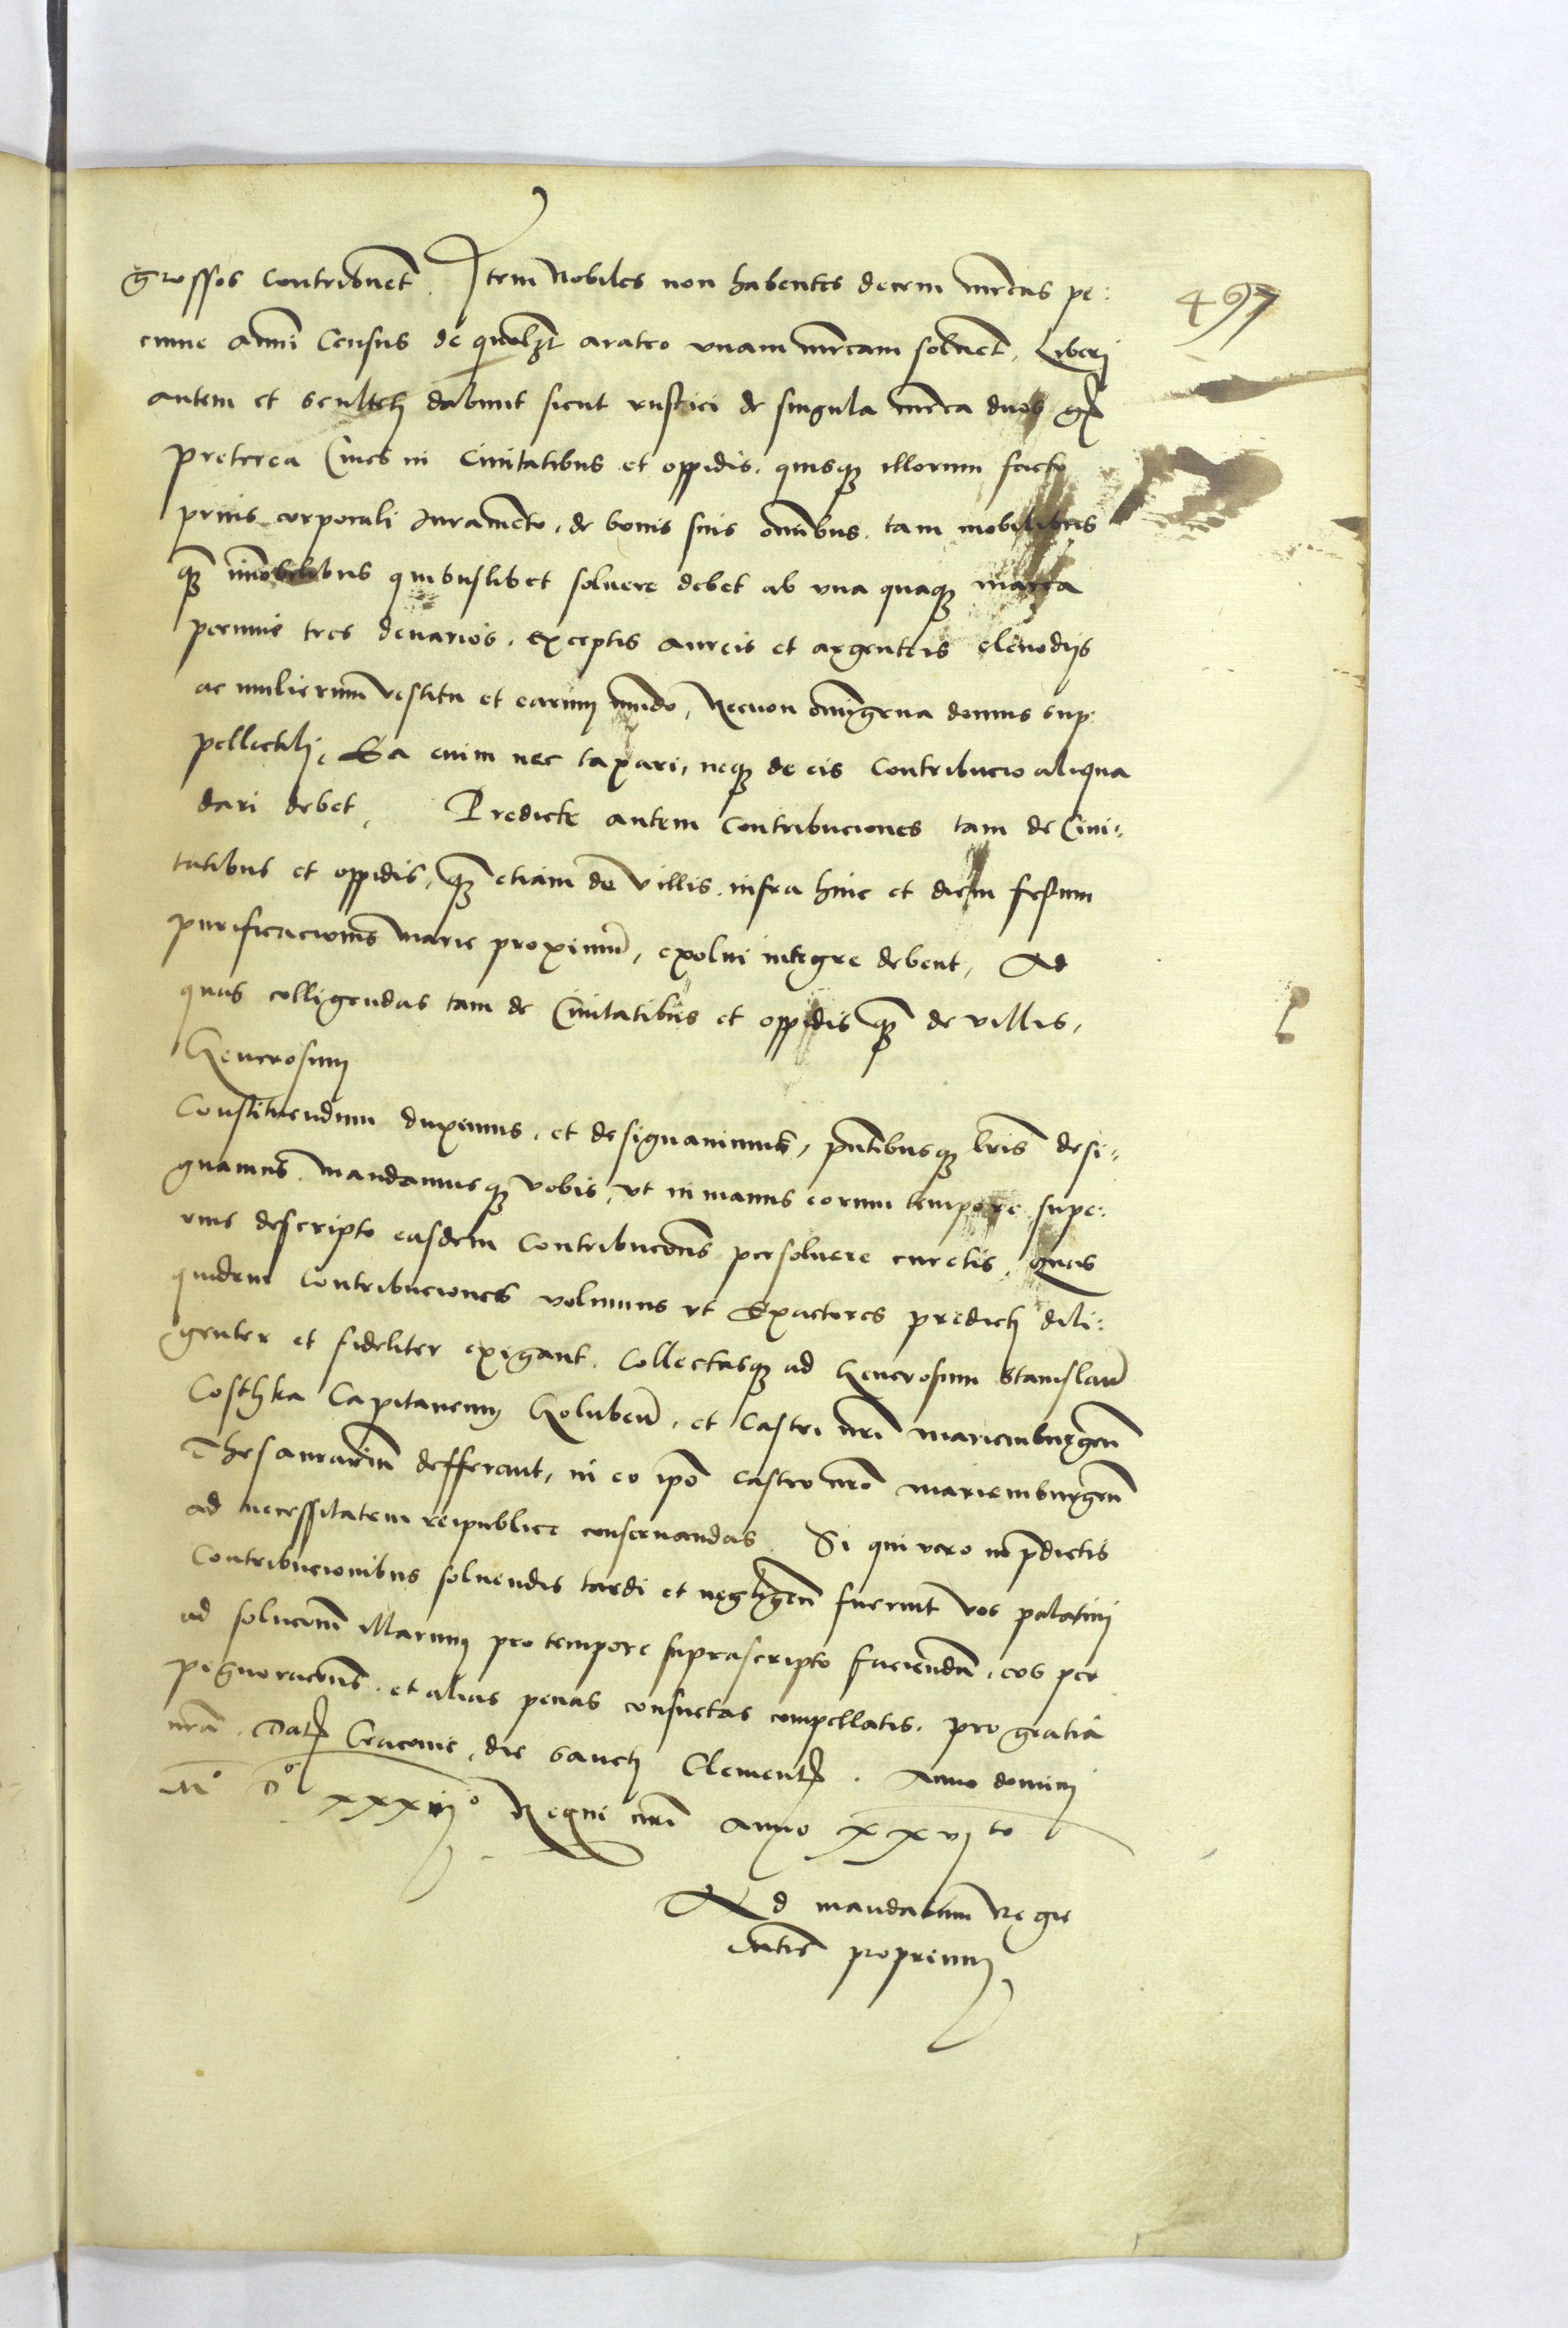 grossos contribuēt. Item Nobiles non habentes decem mrcas pe:
cunie añui Census de quolʒt aratro vnam mrcam soluēt, Liberi
autem et sculteti dabunt sicut rustici de singula mrca duos gr
497
preterea Ciues in Ciuitatibus et oppidis, quisqʒ illorum facto
prius corporali iuramēto, de bonis suis om̄ibus tam mobilibus
qʒ īmobilibus quibuslibet soluere debet ab vna quaqʒ marca
pecunie tres denarios. exceptis aureis et argenteis clenodijs
ac mulierum vestitu et earum mūdo, Necnon om̄igena domus sup:
pellectili, Ea enim nec taxari, neqʒ de eis Contribucio aliqua
dari debet, Predicte autem contribuciones tam de Ciui:
tatibus et oppidis, qʒ etiam de villis infra hinc et diem festum
purificacionis Marie proximū, exolui integre debent, Ad
quas colligendas tam de Ciuitatibus et oppidis qʒ de villis,
Generosum
Constituendum duximus, et designauimus, pn̄tibusqʒ lr̄is desi:
gnamus, mandamusqʒ vobis, vt in manus eorum tempore supe:
rius descripto easdem Contribucōnes persoluere curetis, quas
quidem Contribuciones volumus vt Exactores predicti dili:
genter et fideliter exigant. Collectasqʒ ad Generosum Stanislaū
Costhka Capitaneum Golubeñ. et Castri nr̄i mariemburgeñ
Thesaurarium defferant, in eo ipō castro nrō mariemburgeñ
ad necessitatem reipublice conseruandas. Si qui vero in p̄dictis
Contribucionibus soluendis tardi et negligeñ fuerint vos palatini
ad solucōnē illarum pro tempore suprascripto faciendā, eos per
pignoracōnes et alias penas consuetas compellatis. pro gratia
nr̄a. Dat Cracouie, die sancti Clementis. Anno domini
M° D° xxxij° Regni nr̄i anno xxvito
Ad mandatum Regie
Mtis proprium